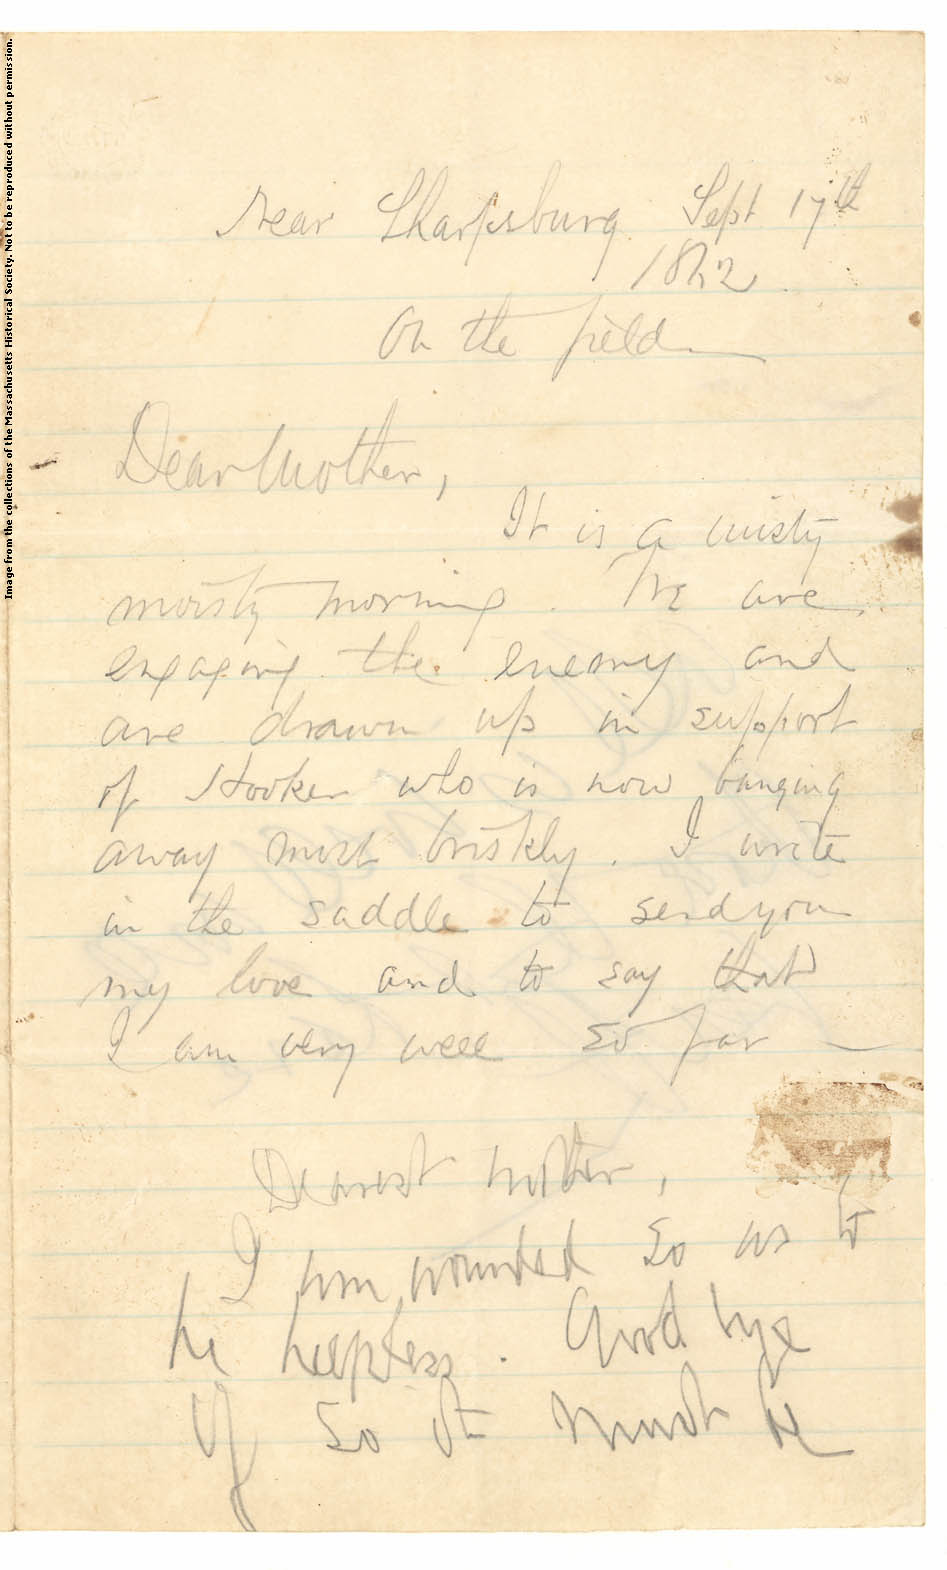 Image from the collections of the Massachusetts Historical Society. Not to be reproduced without permission.
Near Sharpsburg. Sept 17th
1862.
On the field
Dear Mother,
It is a misty
moisty morning. We are
engaging the enemy and
are drawn up in support
of Hooker who is now banging
away most briskly. I write
in the saddle to send you
my love and to say that
I am very well so far
Dearest mother,
I am wounded so as to
be helpless. Good bye
if so it must be